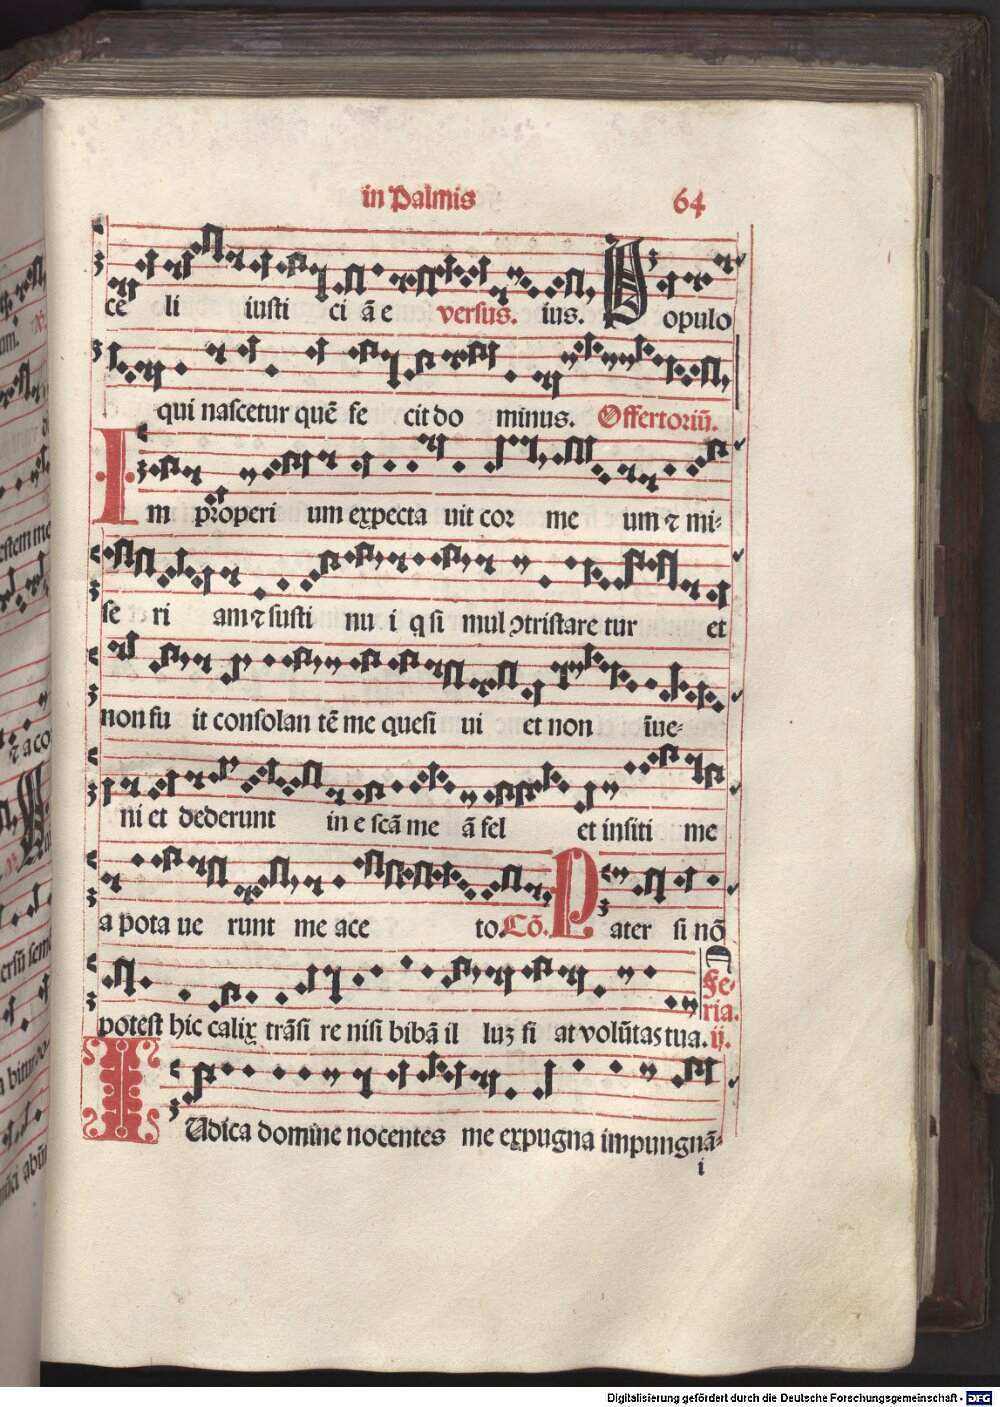 in Palmis 64
ce li iusti ci ā e versus. ius. Populo
qui nascetur quē fe cit do minus. Offertoriū.
Im properi um expecta uit cor me um ⁊ mi⸗
se ri am ⁊ susti nu i q si mul ↄtristare tur et
non fu it consolan tē me quesi ui et non īue⸗
ni et dederunt in e scā me ā fel et in siti me
a pota ue runt me ace to. Cō. Pater si nō
potest hic calix trāsi re nisi bibā il luꝫ fi at volūtas tua. Feria. ij.
IUdica domine nocentes me expugna impungnā⸗
i
Digitalisierung gefördert durch die Deutsche Forschungsgemeinschaft - DFG